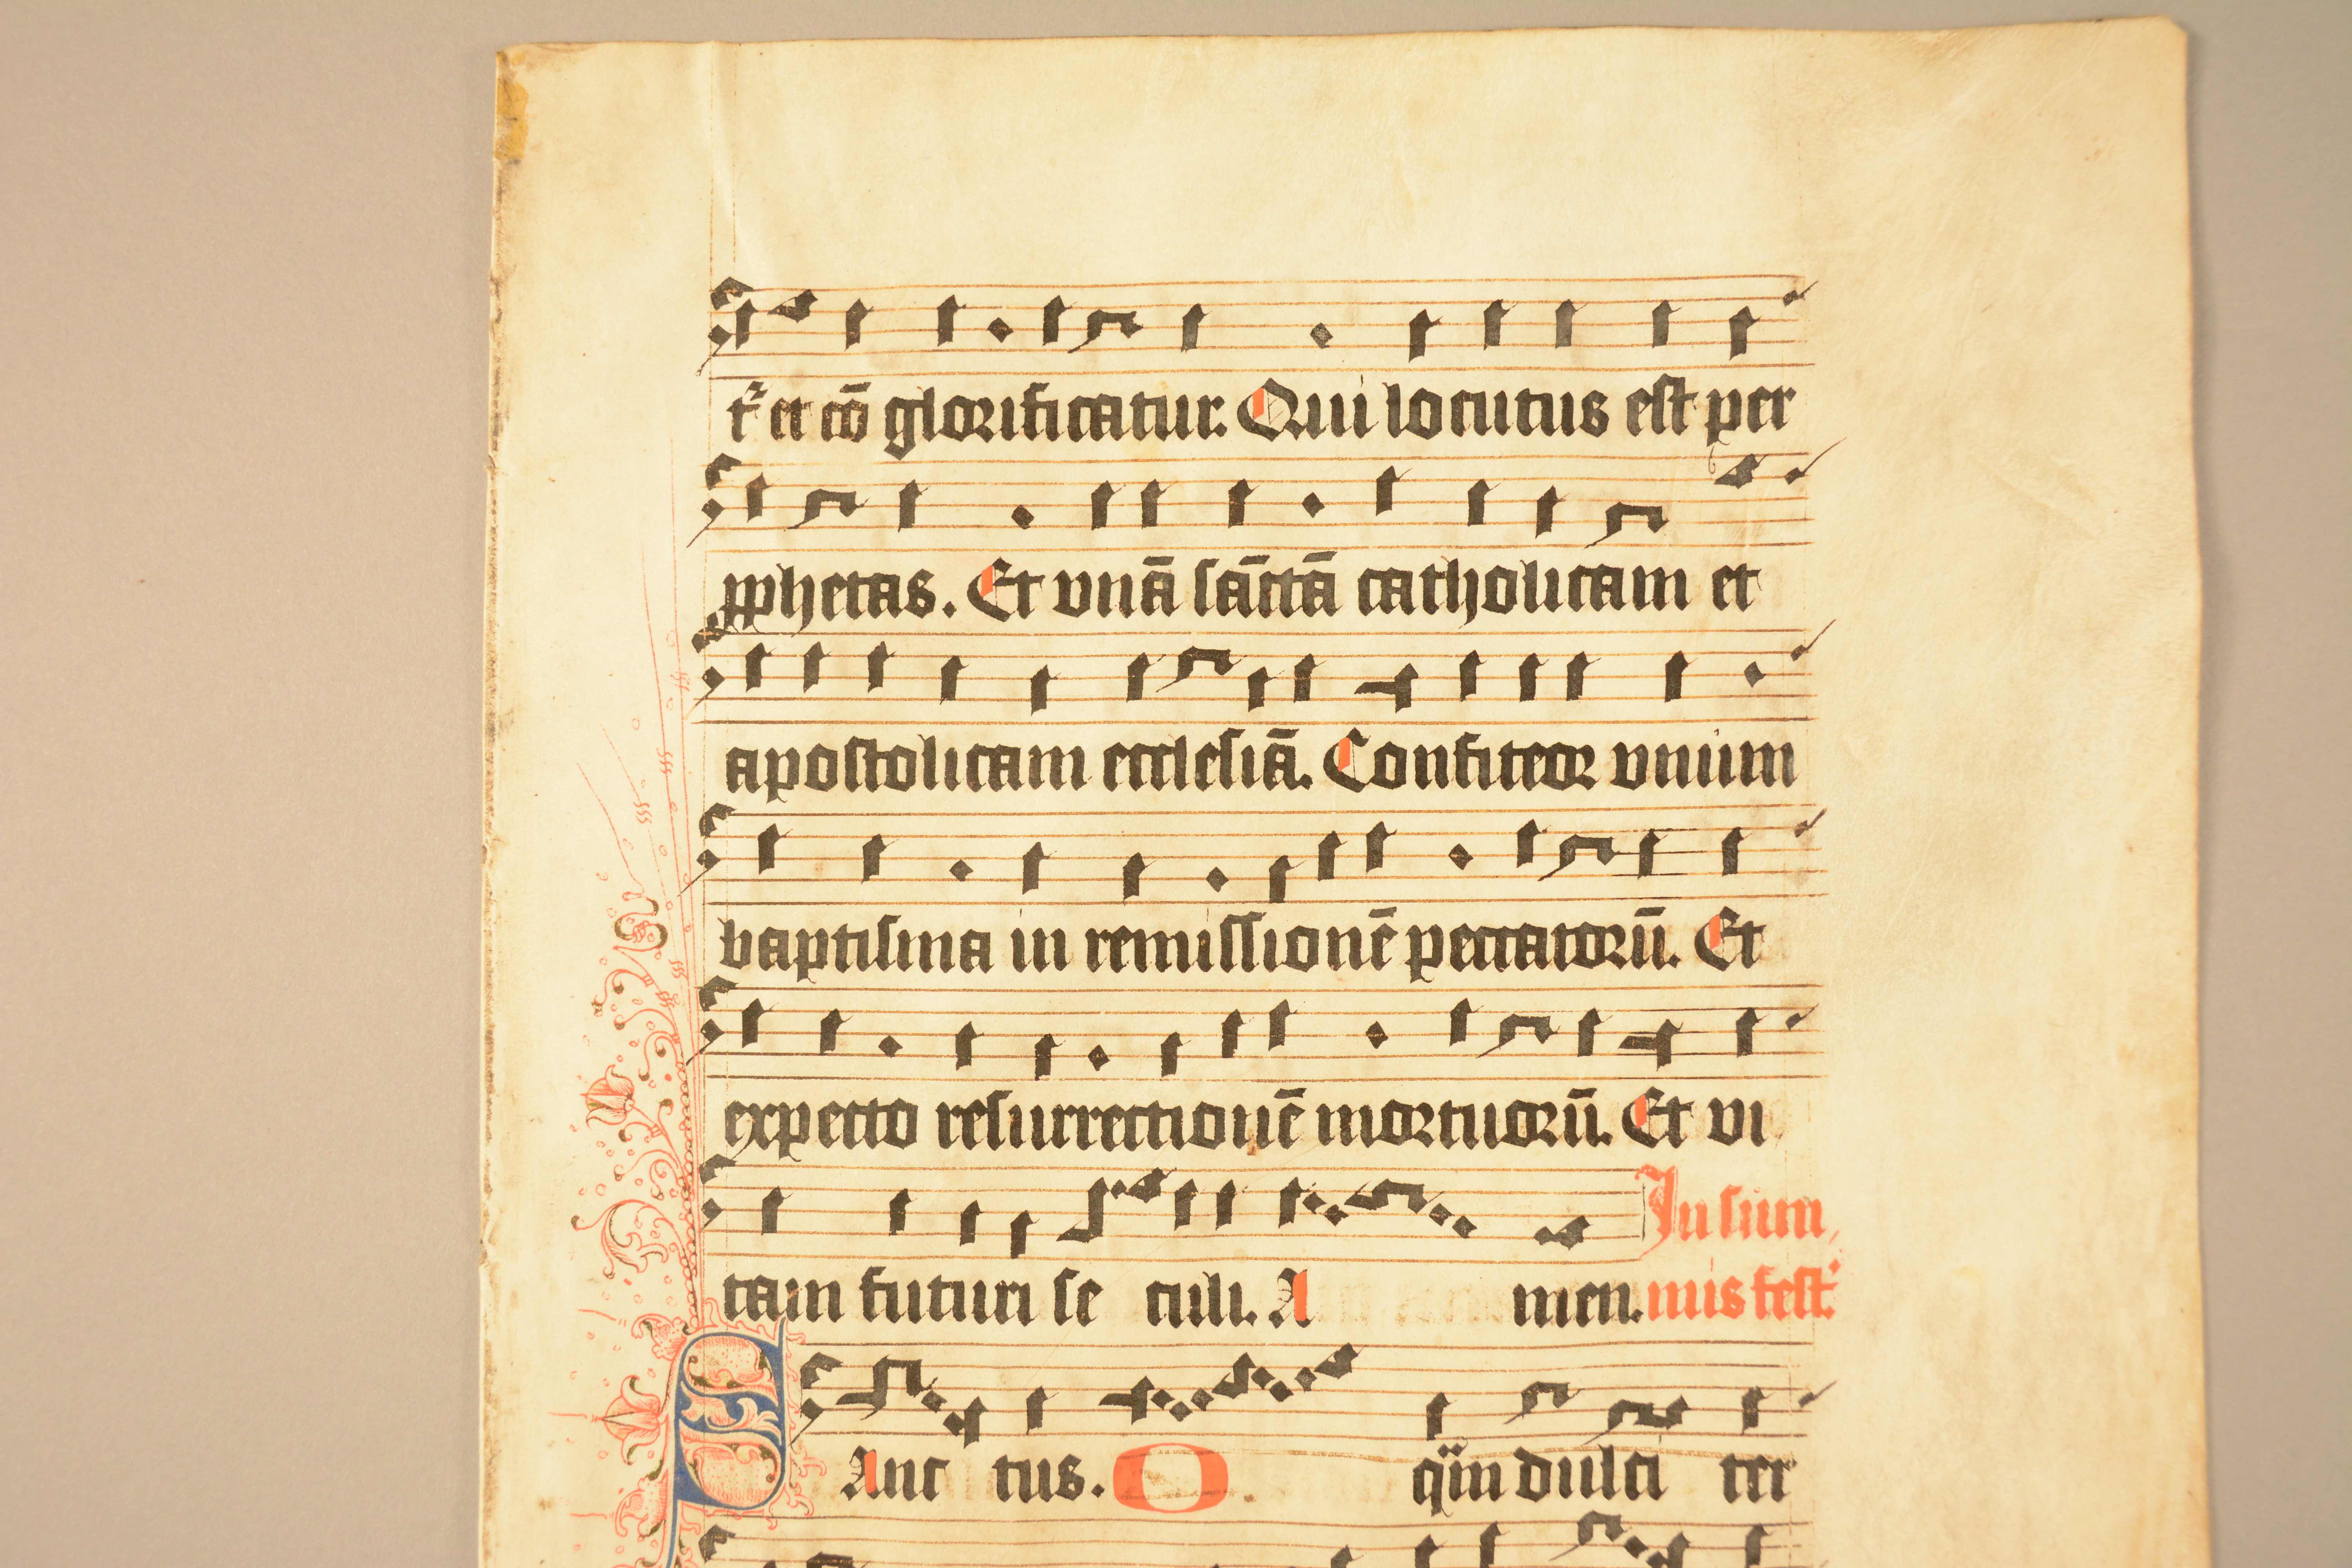 t᷑ et cō glorificatur. Qui locutus est per
ꝓphetas. Et vnā sāctā catholicam et
apostolicam ecclesiā. Confiteor vnum
baptisma in remissionē peccatorū. Et
expecto resurrectionē mortuorū. Et vi
tam futuri se culi. A men. In sum
mis fest.
Sanc tus. O qͣm dulci ter